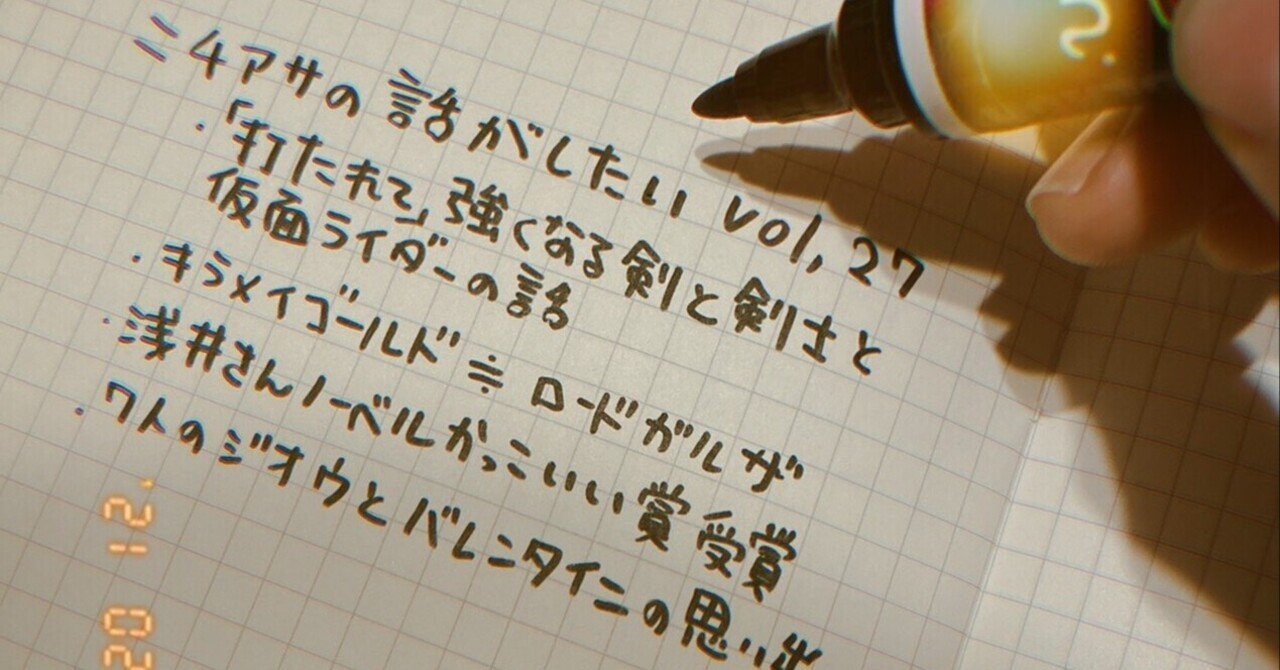 ニチアサの話がしたい vol,27
・「打たれて」強くなる剣と剣士と
仮面ライダーの話
・キラメイゴールド≒ロードガルザ
・浅井さんノーベルかっこいい賞受賞
・7人のジオウとバレンタインの思い出
20 12.